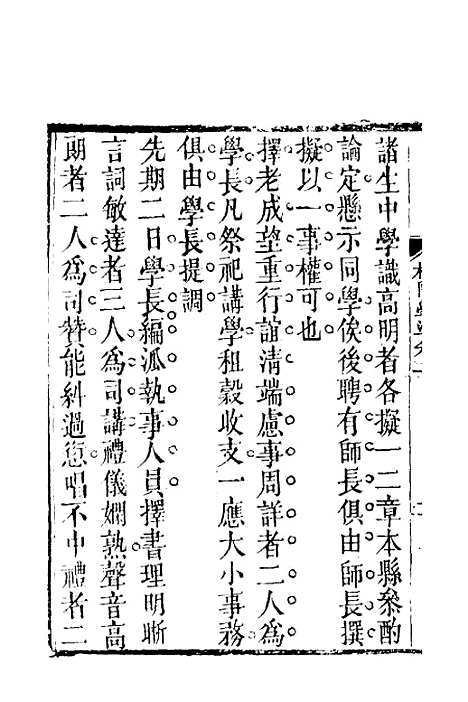 諸生中學識高明者各擬一二章本縣叅酌
論定懸示同學俟後聘有師長俱由師長撰
擬以一事權可也
擇老成望重行誼清端慮事周詳者二人為
學長凡祭祀講學租穀收支一應大小事務
俱由學長提調
先期二日學長編派執事人員擇書理明晰
言詞敏達者三人為司講禮儀嫻熟聲音高
朗者二人為司贊能糾過愆唱不中禮者二